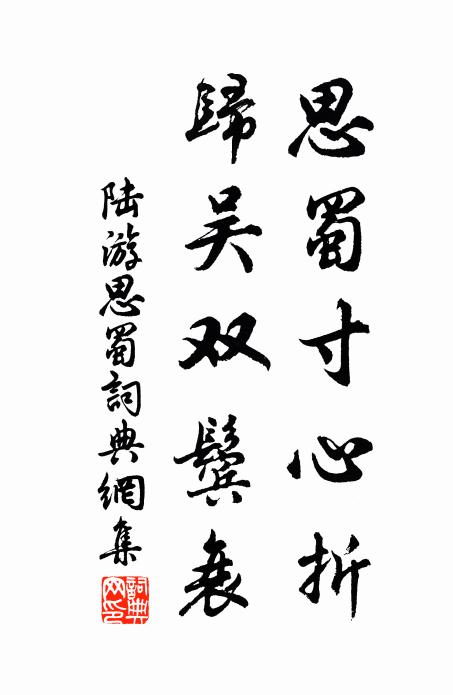 思蜀寸心折
歸吴双鬢衰
陆游思蜀詞典網集
詞典网印